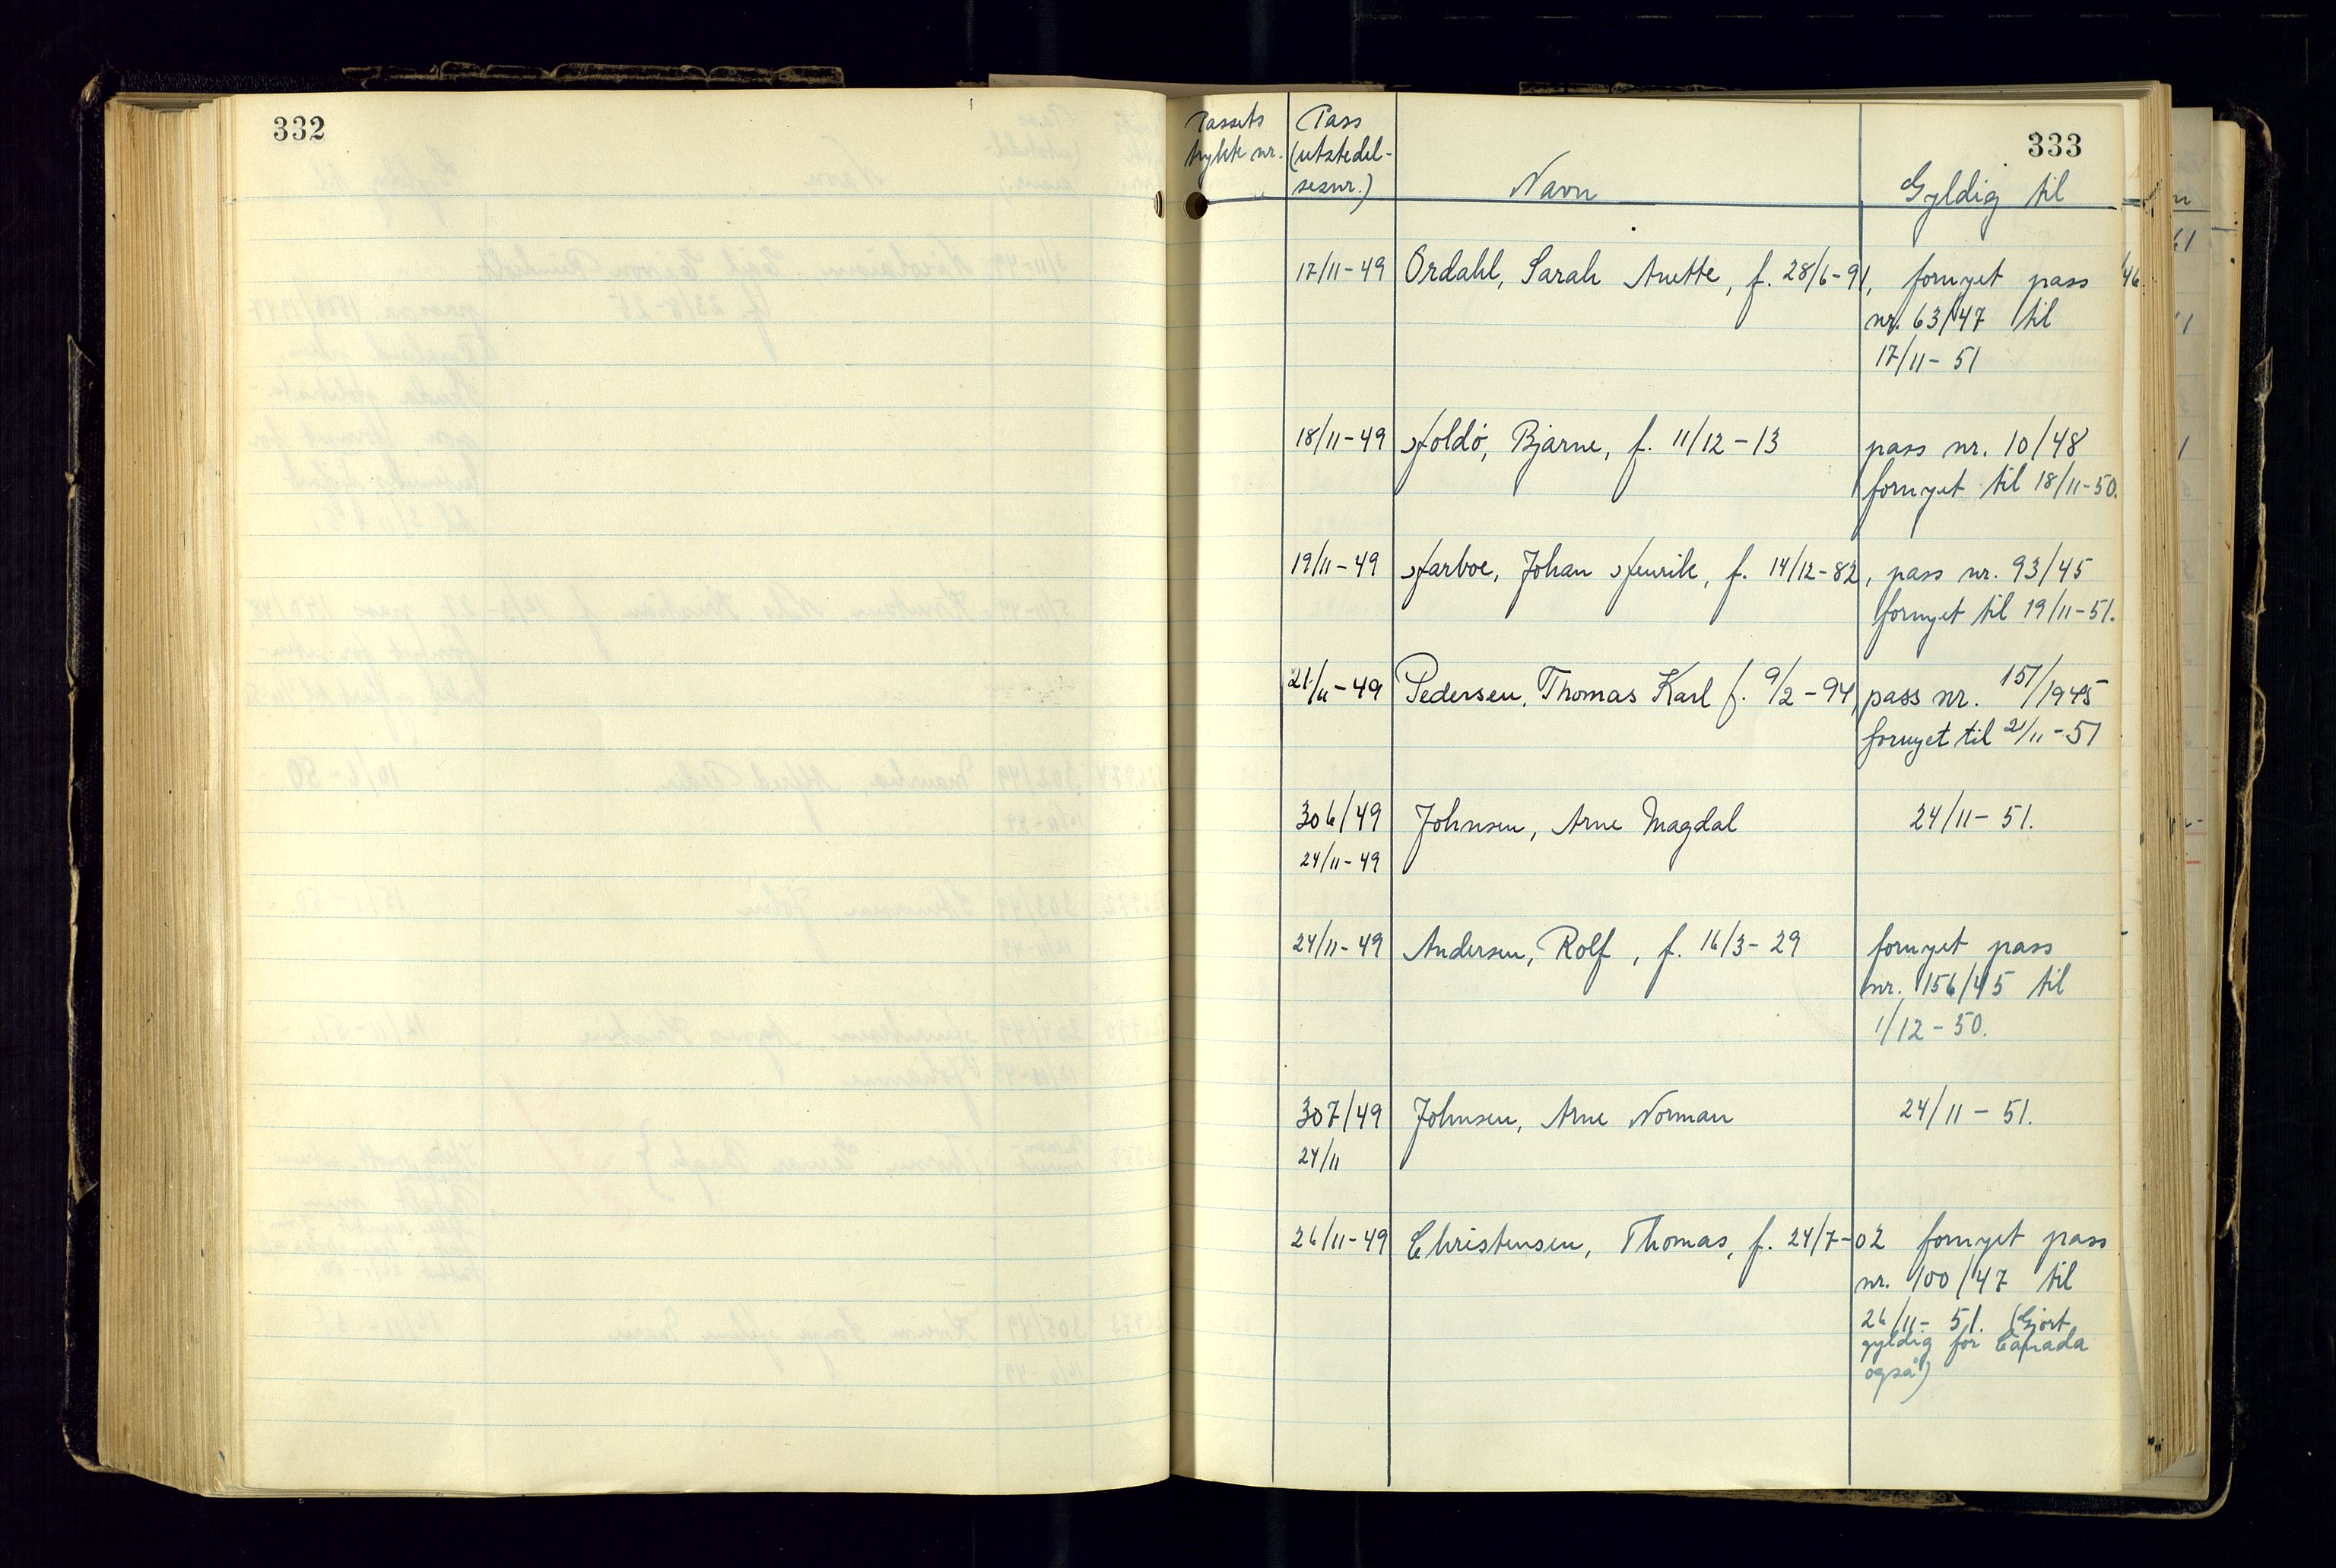 332
333
Passets
trykte nr.
Pass
(utstedel-
sesnr.)
Navn
Gyldig til
17/11-49 Ördahl, Sarah Anette, f. 28/6-91, fornyet pass
nr. 63/47 til
17/11-51
18/11-49 Holdö, Bjarne, f. 11/12-13 pass nr. 10/48
fornyet til 18/11-50.
19/11-49 Harboe, Johan Henrik, f. 14/12-82, pass nr. 93/45
fornyet til 19/11-51.
21/11-49 Pedersen, Thomas Karl f. 9/2-94, pass nr. 157/1945
fornyet til 21/11-51
306/49 Johnsen, Arne Magdal 24/11-51.
24/11-49
24/11-49 Andersen, Rolf, f. 16/3-29 fornyet pass
nr. 156/45 til
1/12-50.
307/49 Johnsen, Arne Norman 24/11-51.
24/11
26/11-49 Christensen, Thomas, f. 24/7-02 fornyet pass
nr. 100/47 til
26/11-51. (Gjort
gyldig for Canada
også)